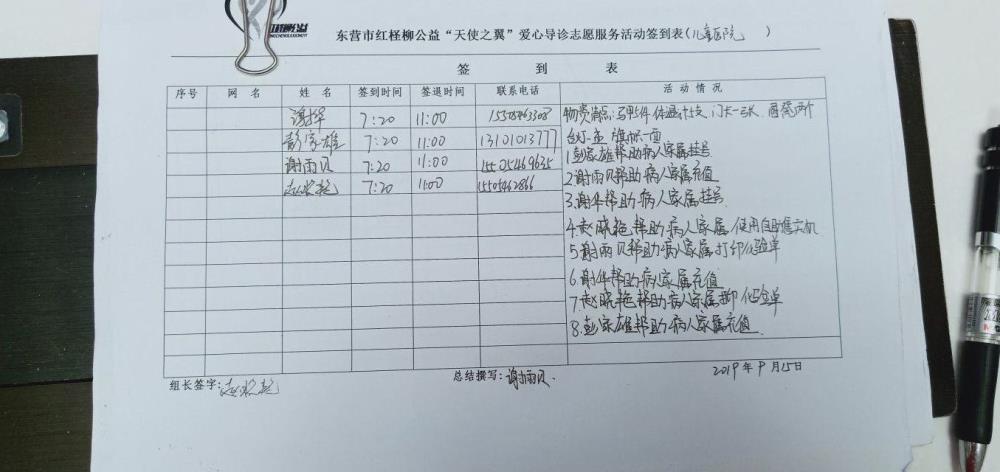 东营市红柽柳公益“天使之翼”爱心导诊志愿服务活动签到表(儿童医院 )
签 到 表
序号 网 名 姓 名 签到时间 签退时间 联系电话 活 动 情 况
谢华 7:20 11:00
彭家雄 7:20 11:00 13101013777
谢雨贝 7:20 11:00 15505469635
7:20 11:00 15505462866
物资清点:马甲5件 体温计5支 门卡一张
台灯一盏 旗帜一面
1.彭家雄帮助病人家属挂号
2.谢雨贝帮助病人家属充值
3.谢华帮助病人家属挂号
4.赵晓艳帮助病人家属使用自助售卖机
5.谢雨贝帮助病人家属打印化验单
6.谢华帮助病人家属充值
7.赵晓艳帮助病人家属 化验单
8.彭家雄帮助病人家属充值
组长签字:
总结撰写:谢雨贝.
2019年9月15日